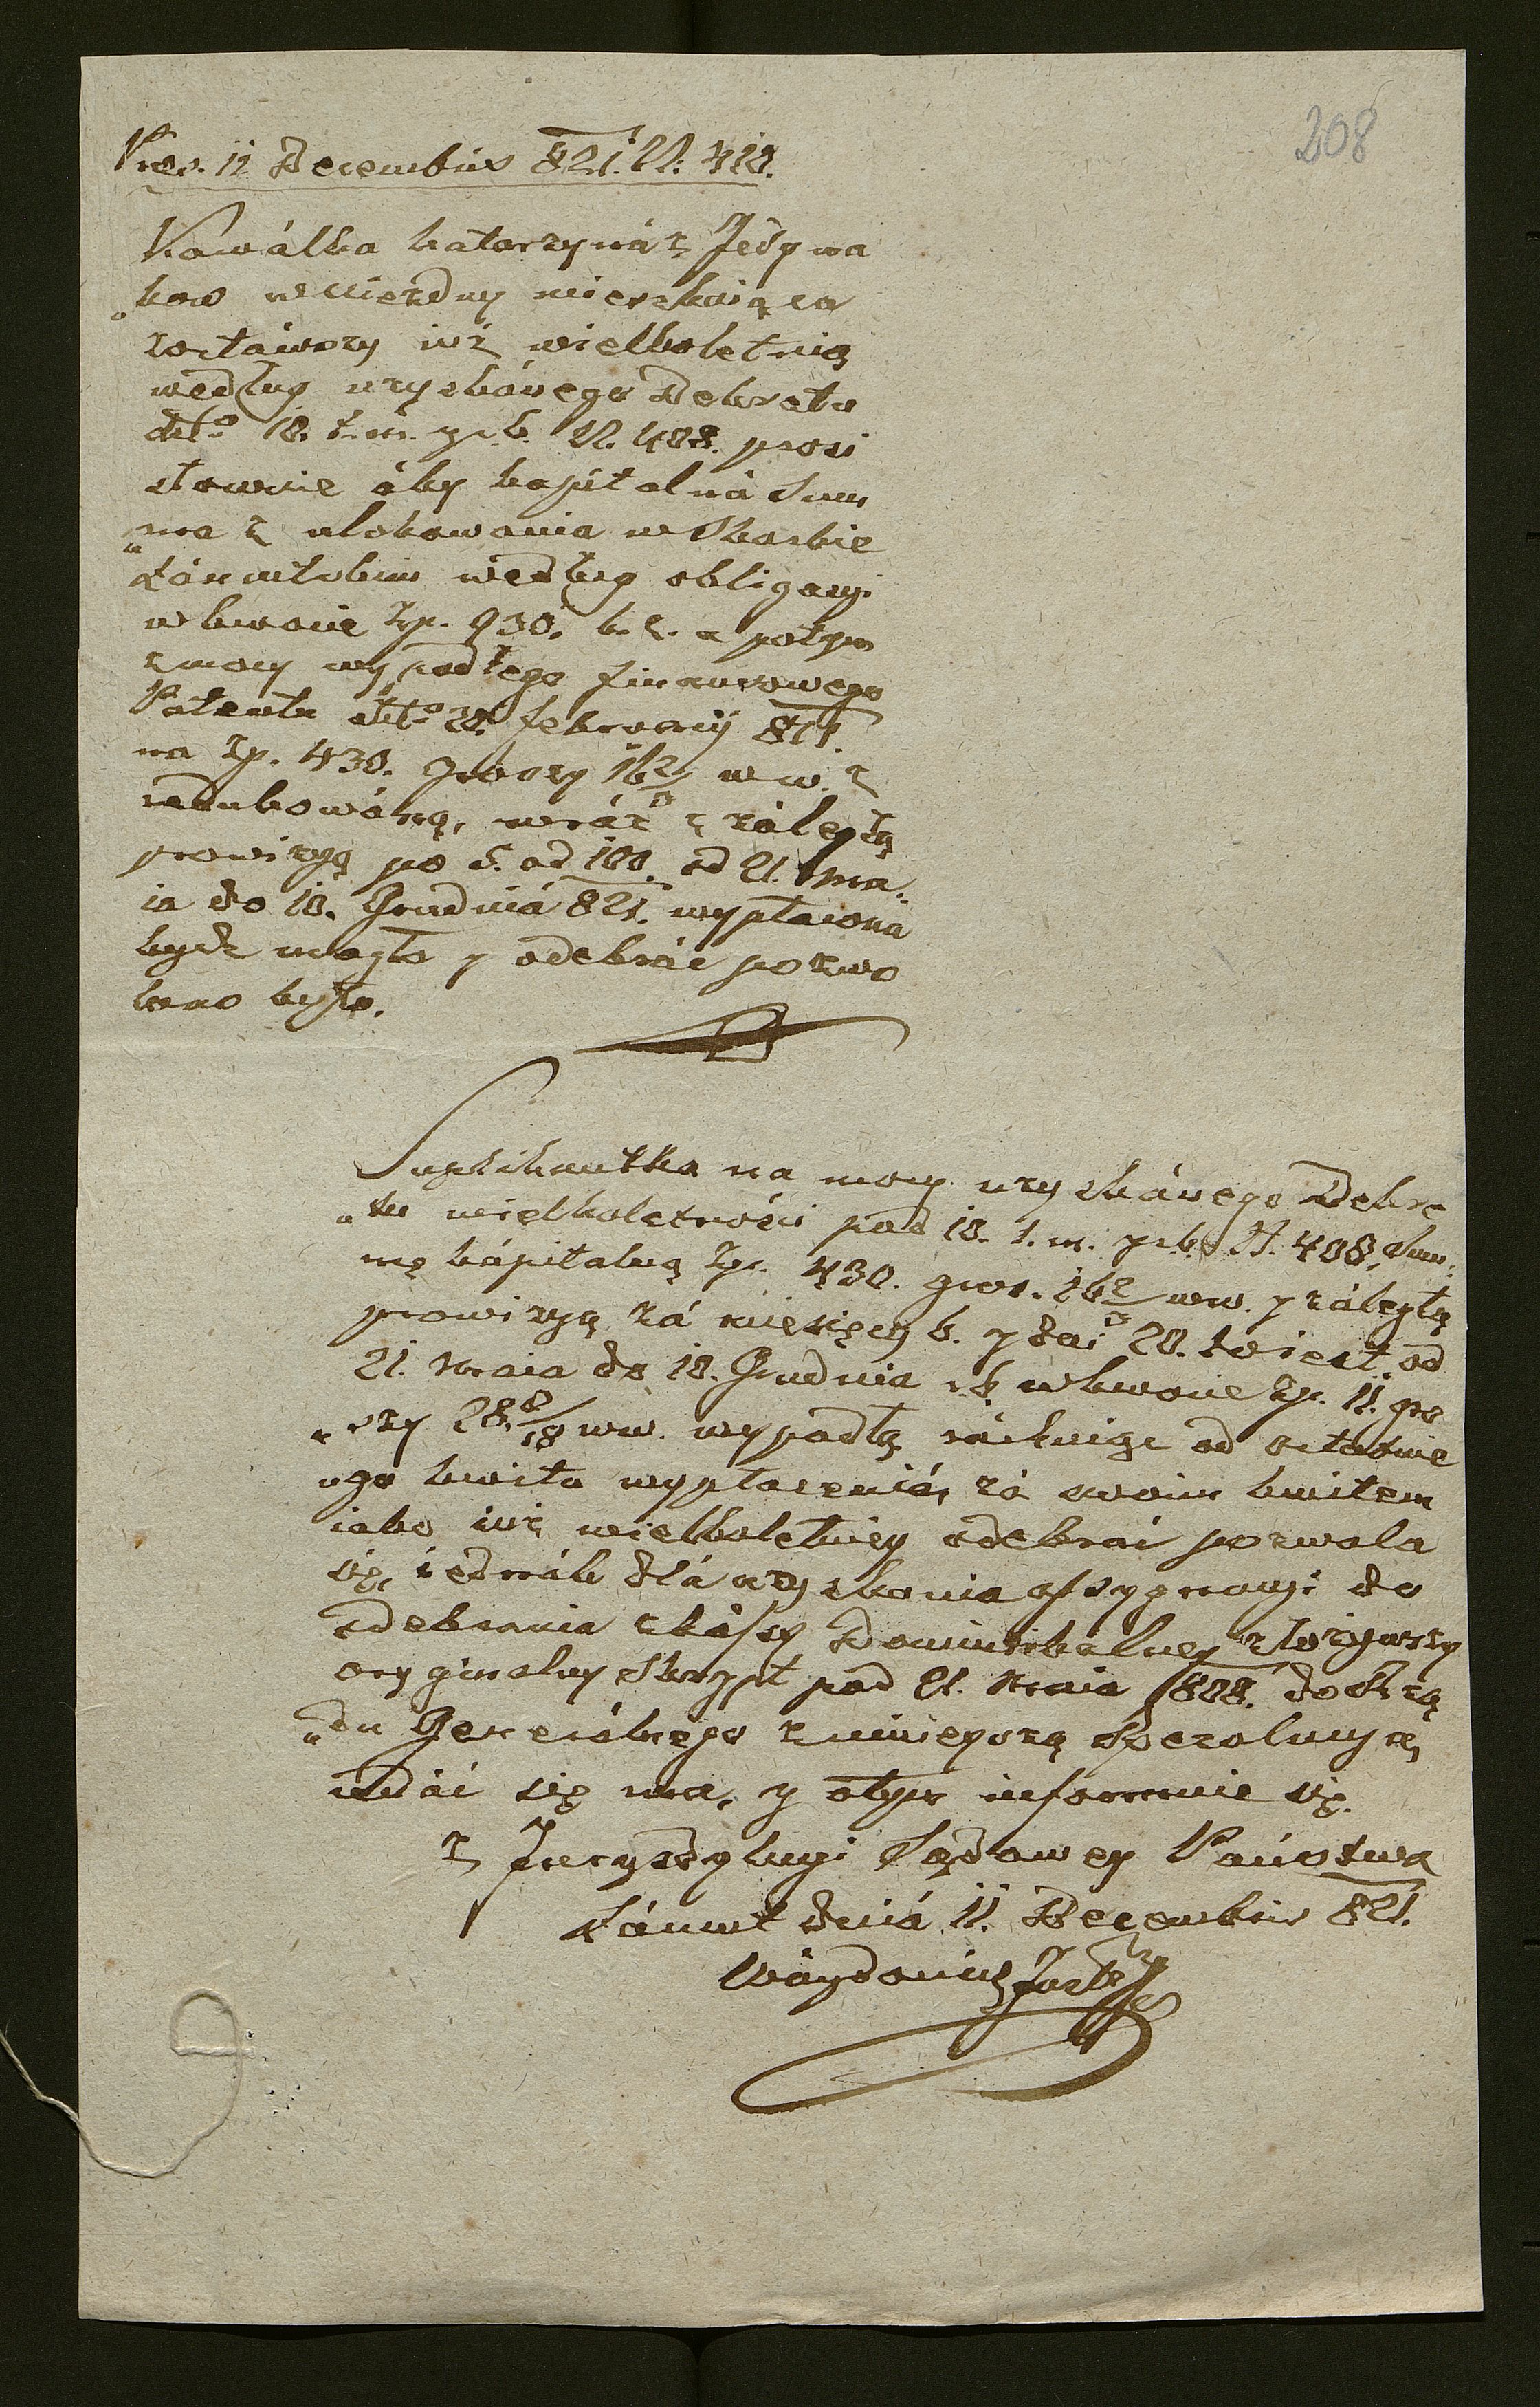 208
Pres. 11 Decembris 821. N. 410.
Kowálka Katarzyná z Jedyna
„kow w Mierdny mieszkaiąca
zostáwszy iuż wielkoletnią
według uzyskánego Dekretu
dtto 10. t. m. y r. b. N. 408. prosi
słownie áby kapitalná Sum
„ma z ulokowania w Skarbie
Łáncutskim według obligacyi
w kwocie Zp. 930. k. r. a potym
z mocy wypadłego finansowego
Patentu dtto 20. February 811.
na Zp. 430. groszy 16 2/3 w w. z
redukowáną, wráz z záległą
prowizyą po 5. od 100. od 21. Ma„
ia do 10. Grudniá 821. wypłaconá
bydz mogła y odebráć pozwo
lono było.
Suplikantka na mocy uzyskánego Dekre
„tu wielkoletności pod 10. t. m. y r. b. N. 408. Sum„
mę kápitalną Zp. 430. gros. 16 2/3 ww. y záległą
prowizyą zá miesięcy 6. y dni 20. to iest od
21. Maia do 10. Grudnia r. b. w kwocie Zp. 11. gro
„szy 28. 8/18 ww. wypadłą ráchuiąc od ostatnie
„go kwitu wypłacenia, zá swoim kwitem
iako iuż wielkoletniey odebrać pozwala
się, iednák dlá uzyskania assygnacyi do
odebrania z kássy Dominikálney złożywszy
oryginalny Skrypt pod 21. Maia 1808. do Rzą
„du Generálnego z ninieyszą Rezolucyą
udáć się ma, y o tym informuie się.
z Juryzdykcyi Sądowey Páństwa
Łáncut dniá 11. Decembris 821.
Waydowicz Justz